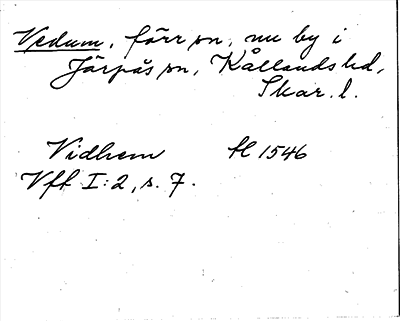 Vedum, förr sn, nu by i
Järpås sn, Kållands hd,
Skar. l.
Vidhem H 1546
Vff I:2, s. 7.